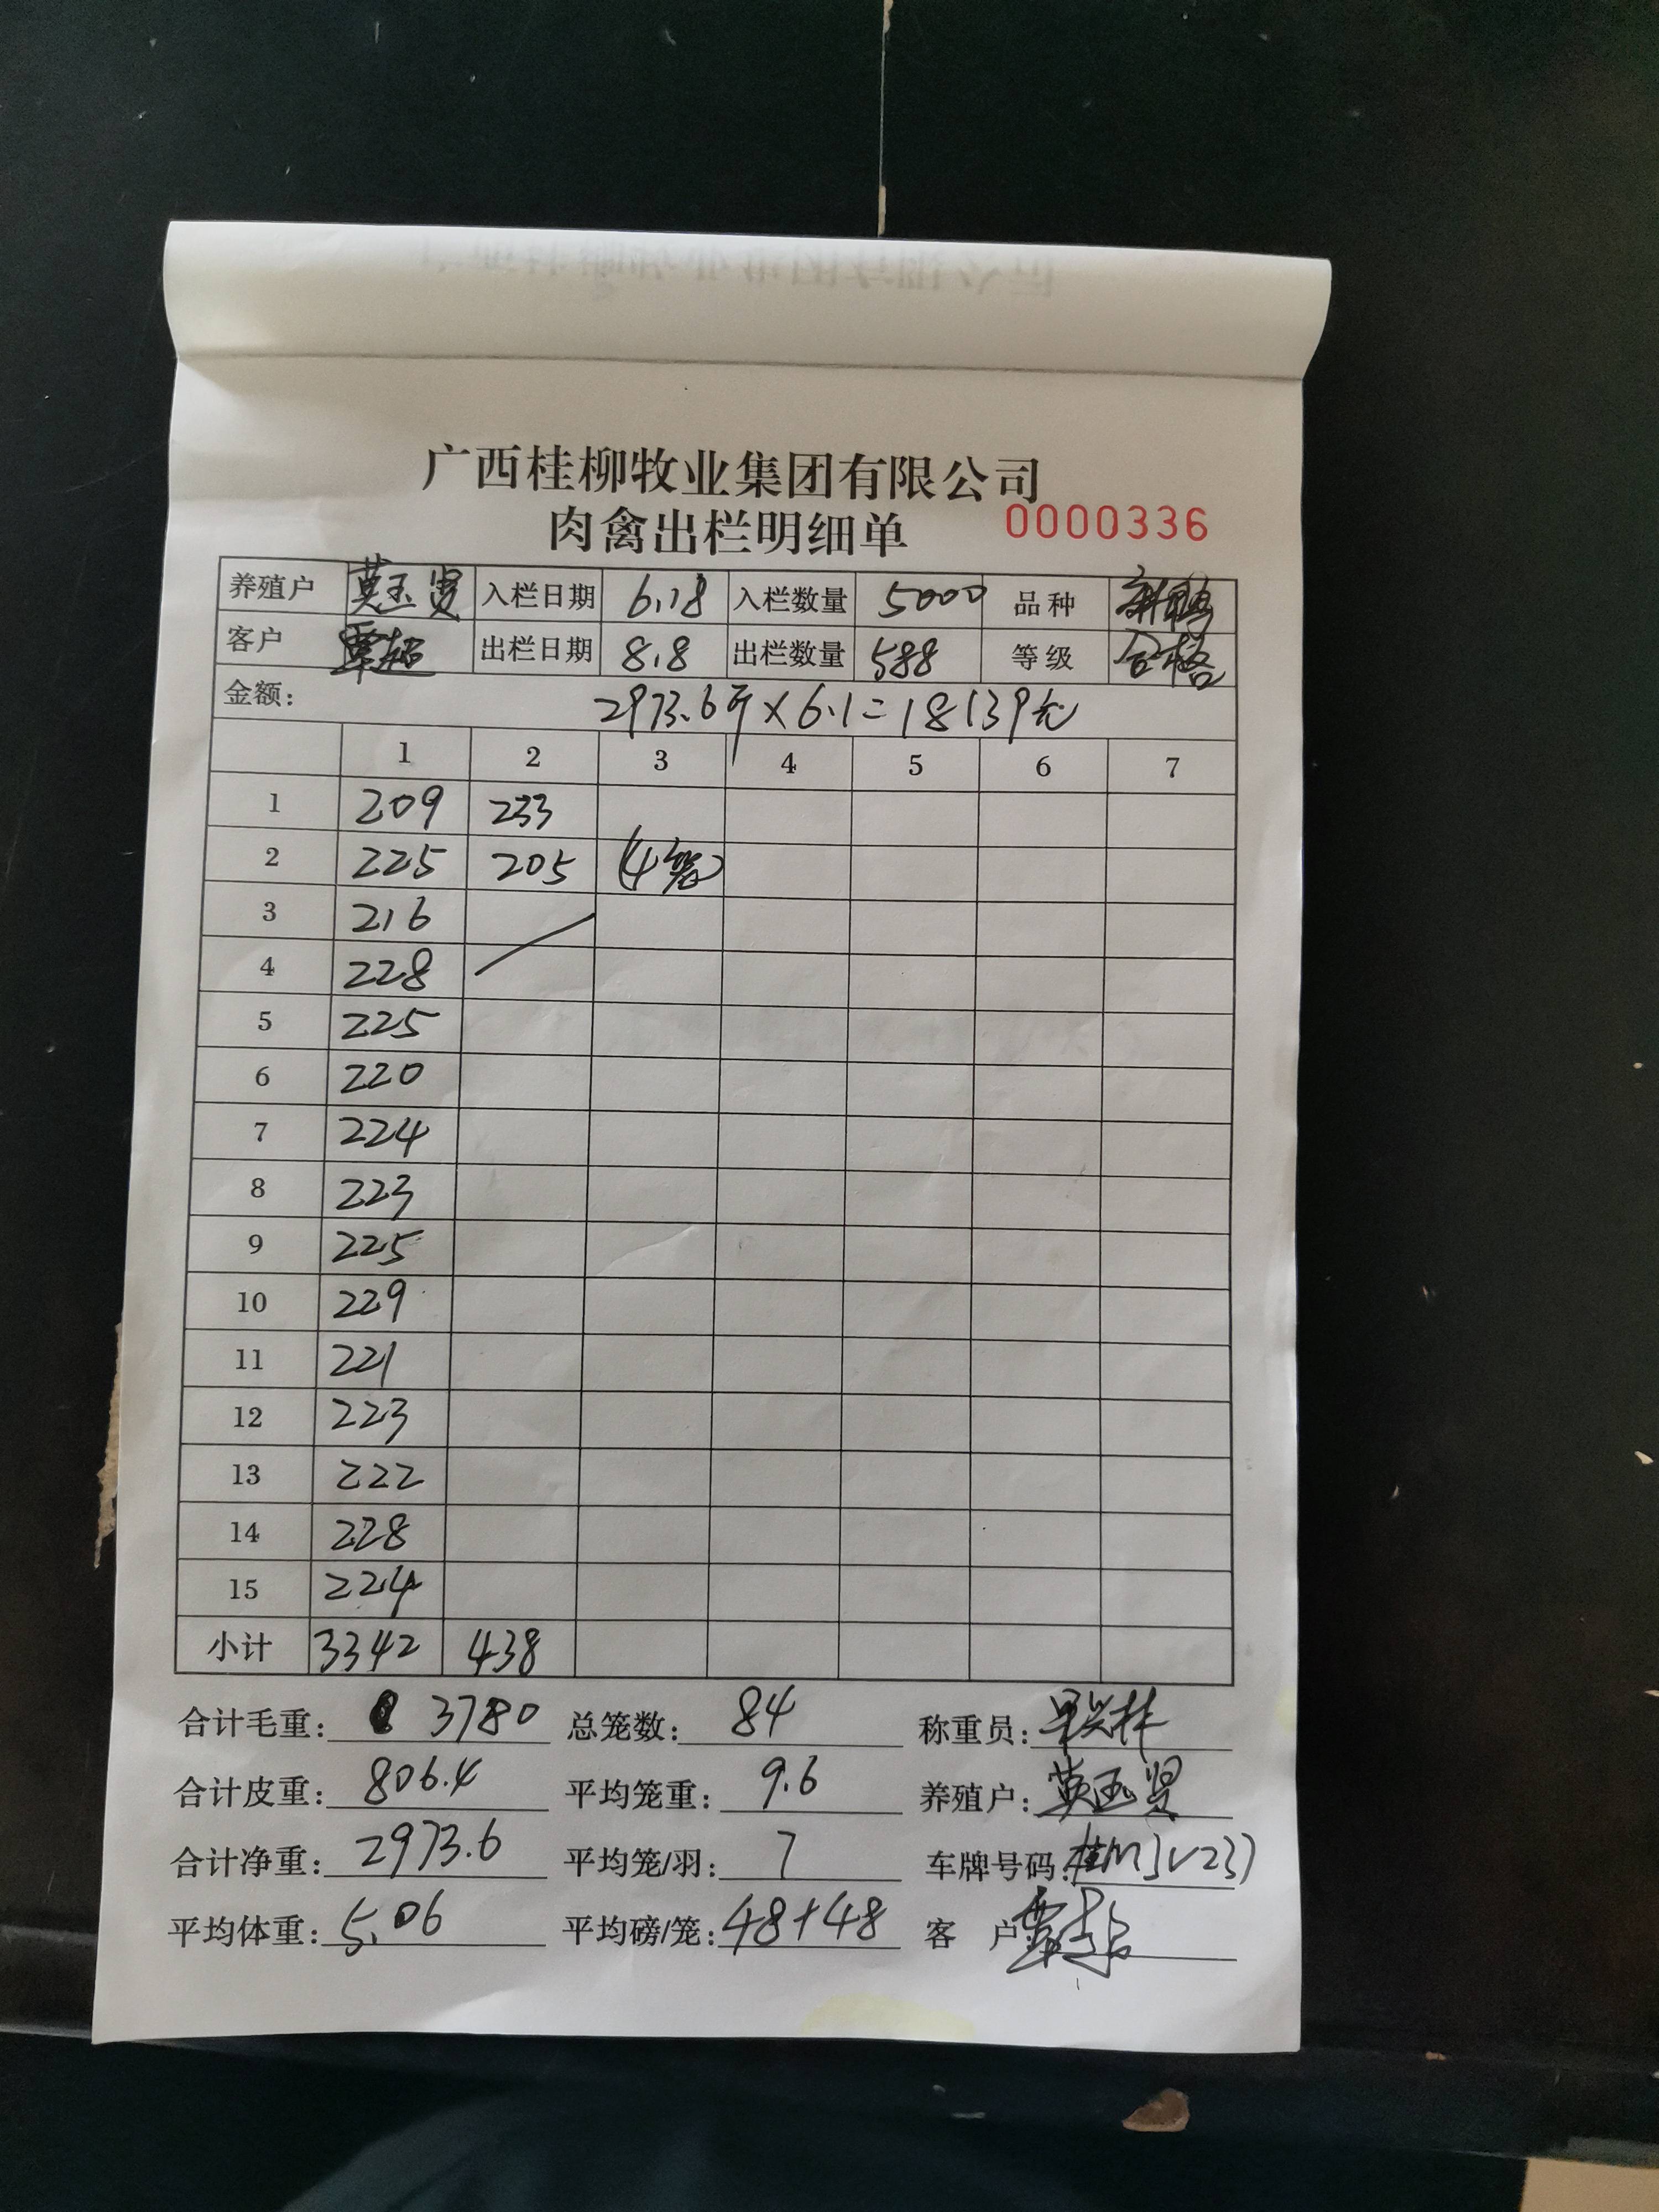 广西桂柳牧业集团有限公司
肉禽出栏明细单 0000336
养殖户 莫玉贤 入栏日期 6.18 入栏数量 5000 品种
客户 覃超 出栏日期 8.8 出栏数量 588 等级 合格
金额: 2973.6斤×6.1=18139元
1 2 3 4 5 6 7
1 209 233
2 225 205 (4笼)
3 216
4 228
5 225
6 220
7 224
8 223
9 225
10 229
11 221
12 223
13 222
14 228
15 224
小计 3342 438
合计毛重: 3780 总笼数: 84 称重员:
合计皮重: 806.4 平均笼重: 9.6 养殖户: 莫玉贤
合计净重: 2973.6 平均笼/羽: 7 车牌号码:
平均体重: 5.06 平均磅/笼: 48+48 客 户 覃超